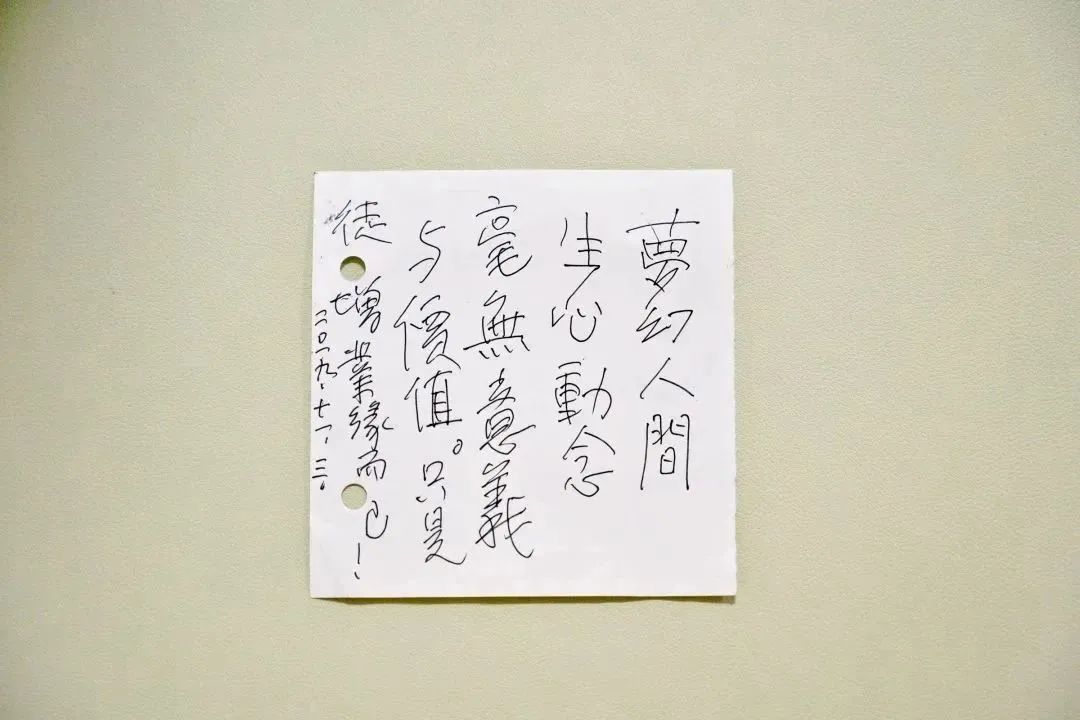 夢幻人間
生心動念
毫無意義
与價值。只是
徒增業緣而已！
二〇一九、十一、三。